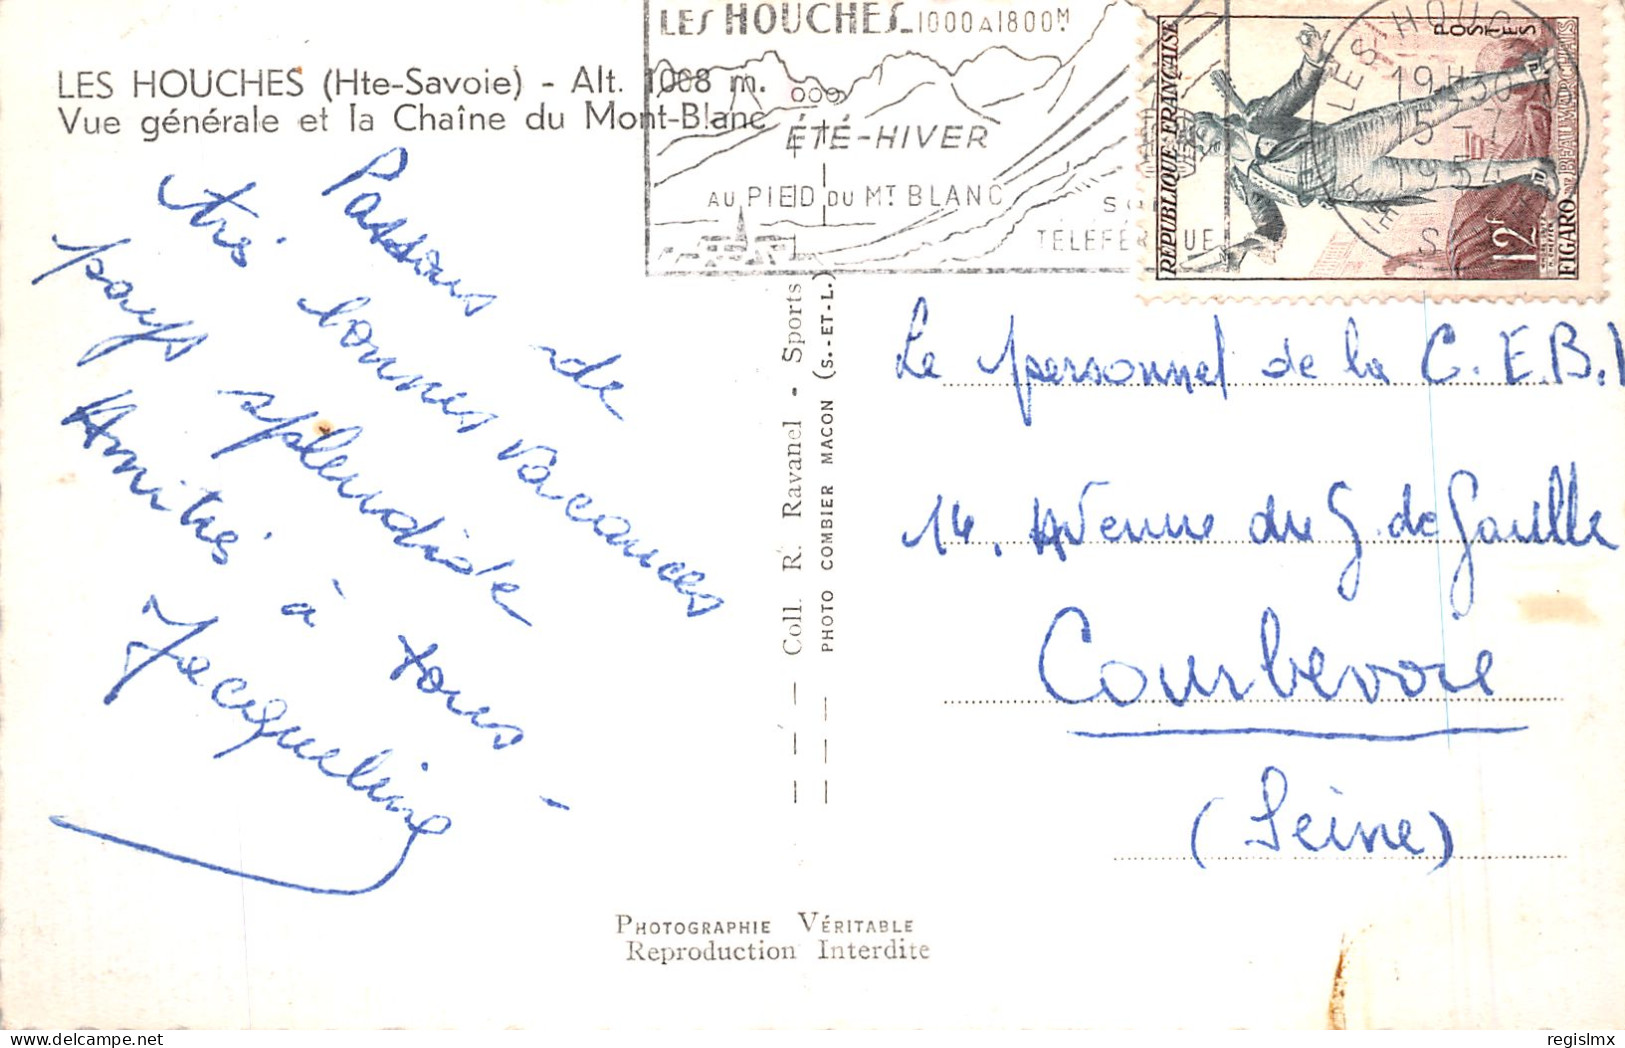 LES HOUCHES (Hte-Savoie) - Alt. 1008 m.
Vue générale et la Chaîne du Mont-Blanc
LES HOUCHES_1000 A 1800M
ÉTÉ-HIVER
AU PIED DU MT BLANC
TÉLÉFÉ UE
LES HOUC
19H30
15 -7
1954
RÉPUBLIQUE FRANÇAISE
POSTES
12F
FIGARO DE BEAUMARCHAIS
Passons de
très bonnes vacances
pays splendide
Amitiés à tous -
Jacqueline
Coll. R. Ravanel - Sports
PHOTO COMBIER MACON (S.-ET-L.)
Le personnel de la C.E.B.
14, Avenue du G. de Gaulle
Courbevoie
(Seine)
PHOTOGRAPHIE VÉRITABLE
Reproduction Interdite
regislmx